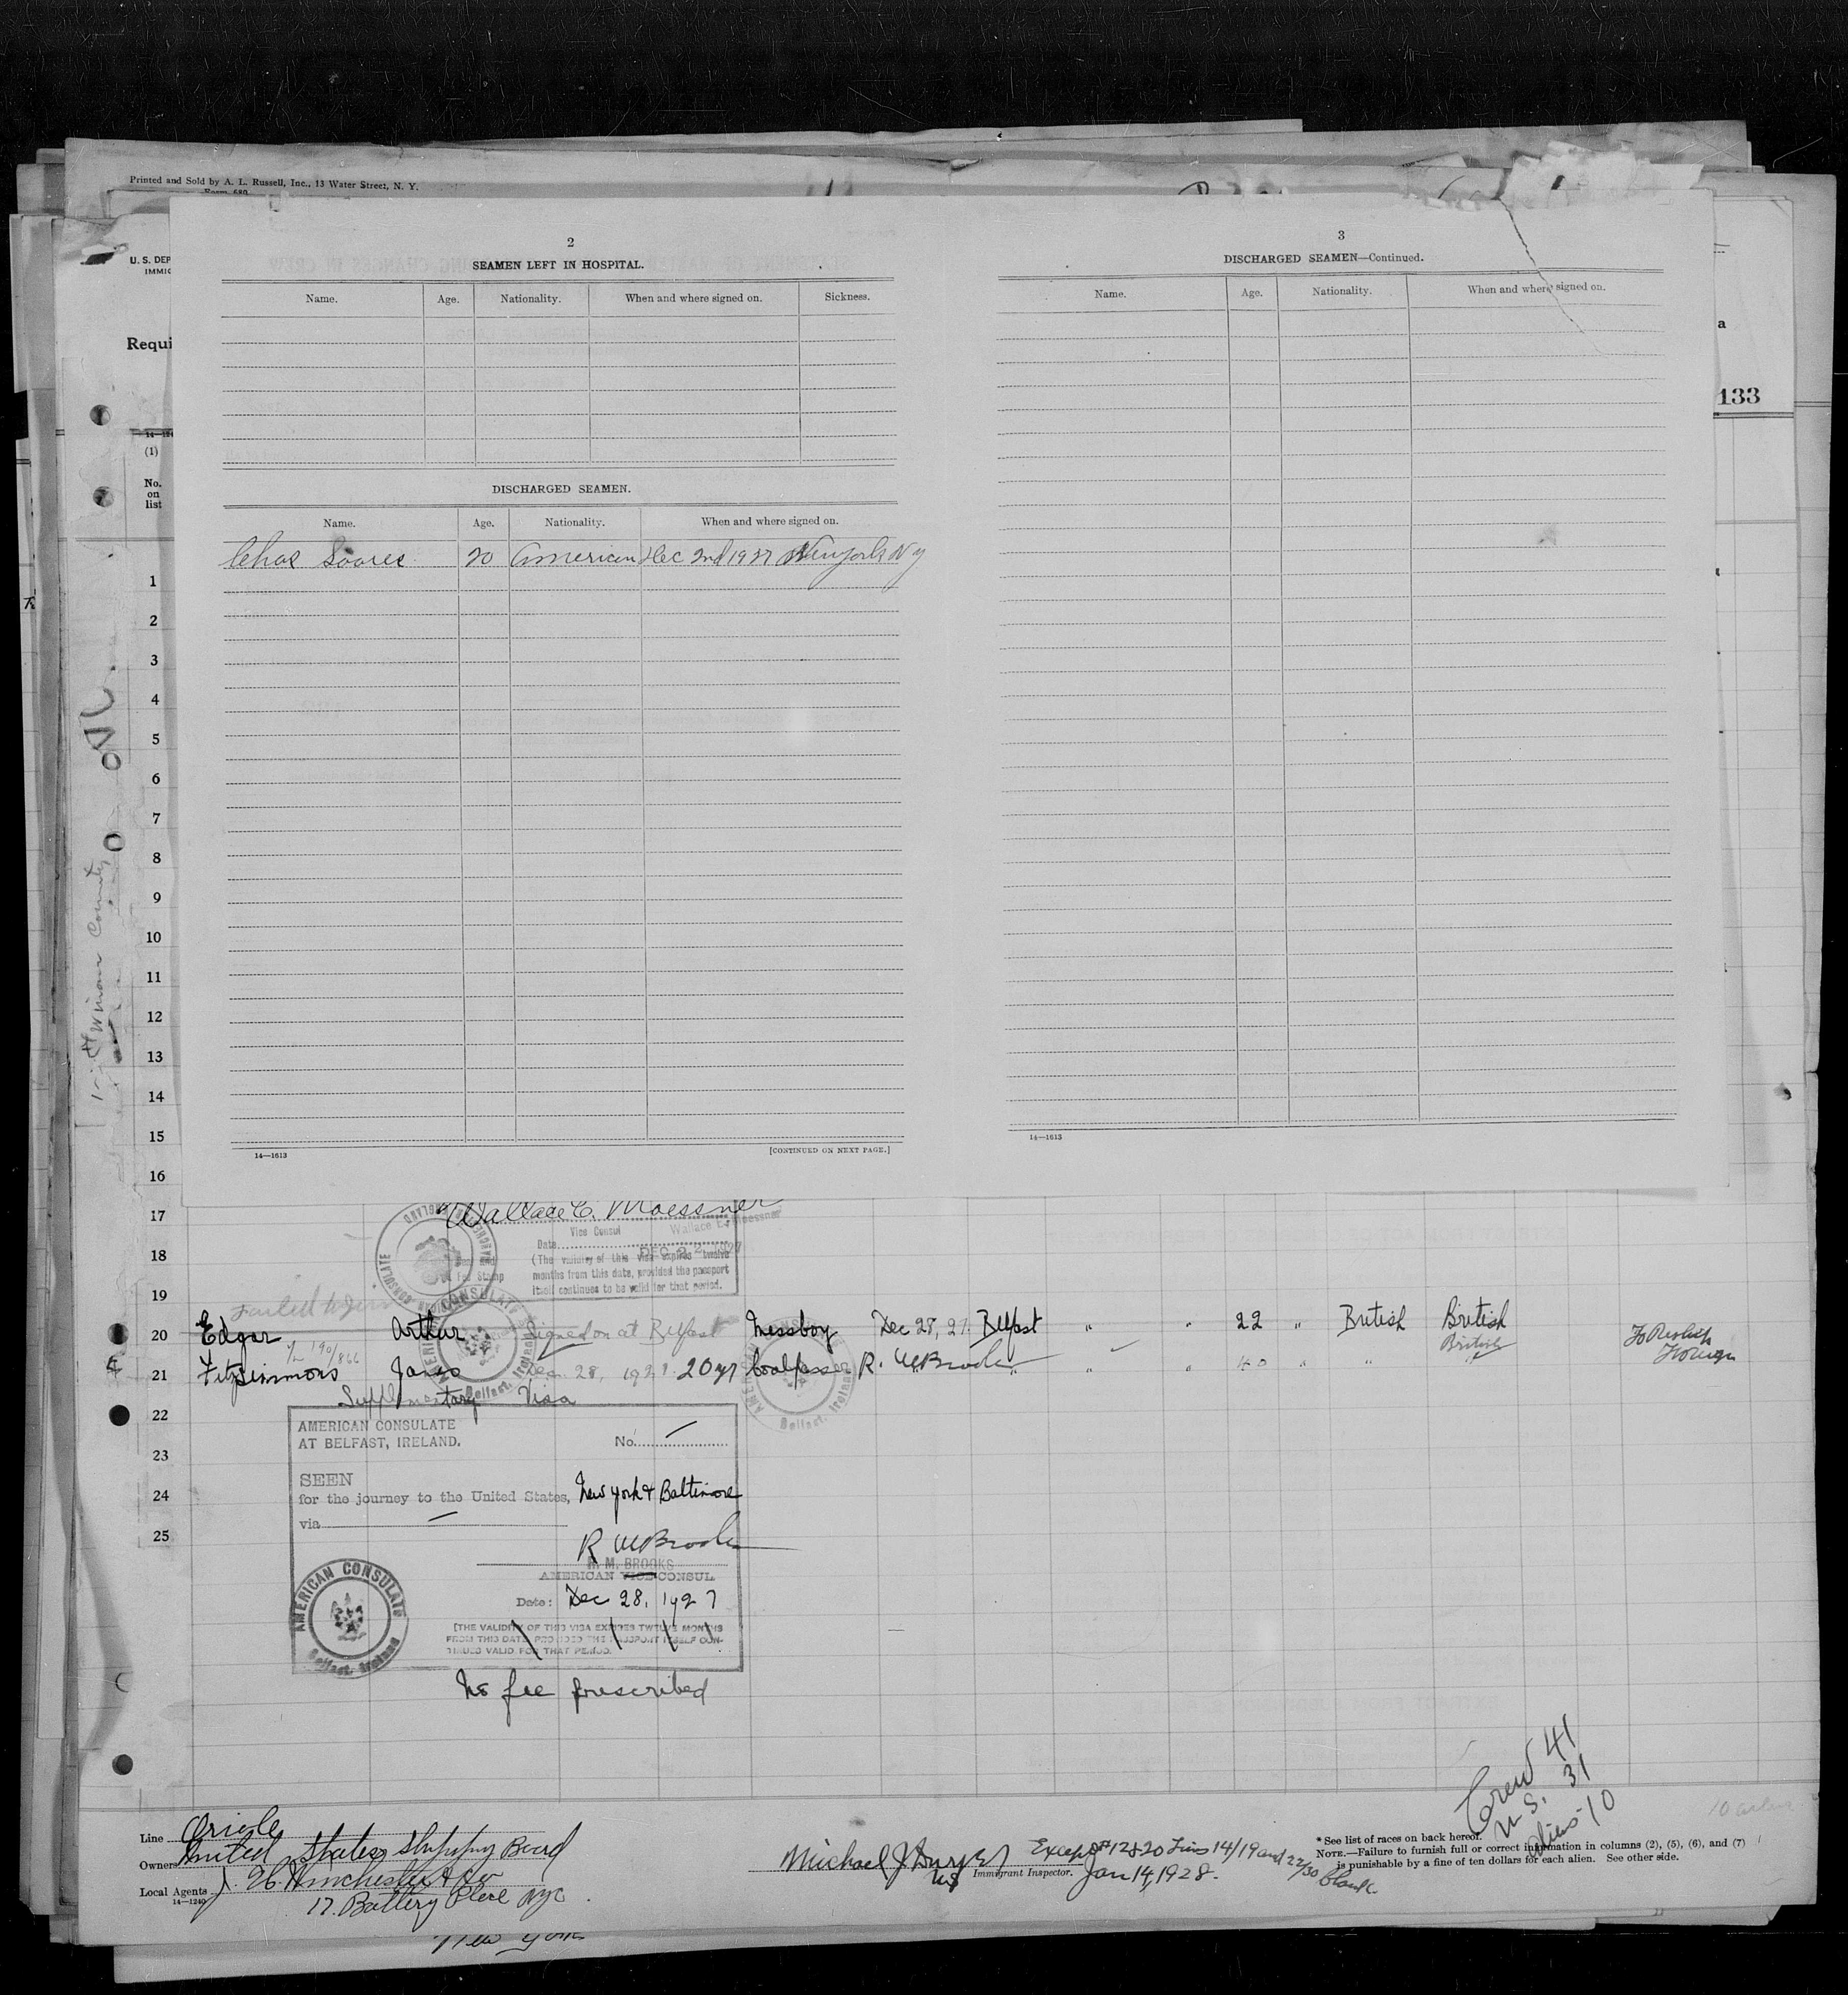 Printed and Sold by A. L. Russell, Inc., 13 Water Street, N. Y.
Form 680
U. S. DEP
IMMIG
Requi
a
133
(1)
No.
on
list
2
SEAMEN LEFT IN HOSPITAL.
Name. Age. Nationality. When and where signed on. Sickness.
DISCHARGED SEAMEN.
Name. Age. Nationality. When and where signed on.
Chas Soares 20 American Dec 2nd 1927 New York N Y
14—1613
[CONTINUED ON NEXT PAGE.]
3
DISCHARGED SEAMEN—Continued.
Name. Age. Nationality. When and where signed on.
14—1613
1
2
3
4
5
6
7
8
9
10
11
12
13
14
15
16
17
18
19
Wallace E. Moessner
Vice Consul Wallace E. Moessner
Date DEC 22 1927
(The validity of this visa expires twelve
months from this date, provided the passport
itself continues to be valid for that period.
Fee Stamp
Failed to Join
20 Edgar Arthur Signed on at Belfast Messboy Dec 28, 27. Belfast " " 22 " British British
21 Fitzsimmons James Dec. 28, 1927. 20 yr Coalpasser R. M. Brooks " " 40 " " British
Supplementary Visa
22
23
24
25
AMERICAN CONSULATE
AT BELFAST, IRELAND.
No.
SEEN
for the journey to the United States, New York & Baltimore
via
R M Brooks
R. M. BROOKS
AMERICAN VICE CONSUL.
Date: Dec 28, 1927
(THE VALIDITY OF THIS VISA EXPIRES TWELVE MONTHS
FROM THIS DATE, PROVIDED THE PASSPORT ITSELF CON-
TINUES VALID FOR THAT PERIOD.
AMERICAN CONSULATE
Belfast, Ireland
No fee prescribed
Crew 41
U.S. 31
Aliens 10
Line Oriole
Owners United States Shipping Board
Local Agents J. H. Winchester & Co
14—1240
17. Battery Place NYC
New York
Michael J Dwyer
Immigrant Inspector.
Except #12 & 20 Lines 14/19 and 22/30 blank.
Jan 14, 1928.
* See list of races on back hereof.
NOTE.—Failure to furnish full or correct information in columns (2), (5), (6), and (7)
is punishable by a fine of ten dollars for each alien. See other side.